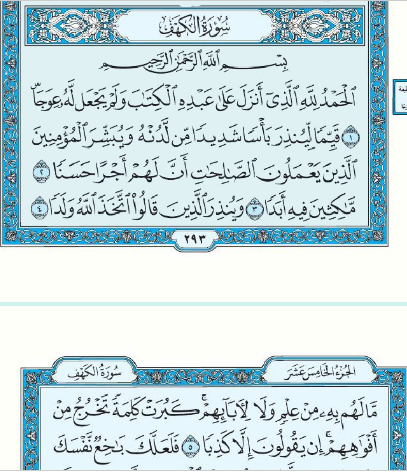 سُورَةُ الكَهْفِ
بِسْمِ اللَّهِ الرَّحْمَٰنِ الرَّحِيمِ
الْحَمْدُ لِلَّهِ الَّذِي أَنزَلَ عَلَىٰ عَبْدِهِ الْكِتَابَ وَلَمْ يَجْعَل لَّهُ عِوَجَا
۝١ قَيِّمًا لِّيُنذِرَ بَأْسًا شَدِيدًا مِّن لَّدُنْهُ وَيُبَشِّرَ الْمُؤْمِنِينَ
الَّذِينَ يَعْمَلُونَ الصَّالِحَاتِ أَنَّ لَهُمْ أَجْرًا حَسَنًا ۝٢
مَّاكِثِينَ فِيهِ أَبَدًا ۝٣ وَيُنذِرَ الَّذِينَ قَالُوا اتَّخَذَ اللَّهُ وَلَدًا ۝٤
٢٩٣
الجُزْءُ الخَامِسَ عَشَرَ
سُورَةُ الكَهْفِ
مَّا لَهُم بِهِ مِنْ عِلْمٍ وَلَا لِآبَائِهِمْ ۚ كَبُرَتْ كَلِمَةً تَخْرُجُ مِنْ
أَفْوَاهِهِمْ ۚ إِن يَقُولُونَ إِلَّا كَذِبًا ۝٥ فَلَعَلَّكَ بَاخِعٌ نَّفْسَكَ